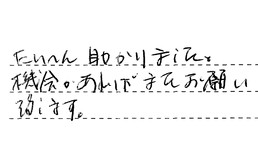 たいへん助かりました。
機会があればまたお願い
致します。